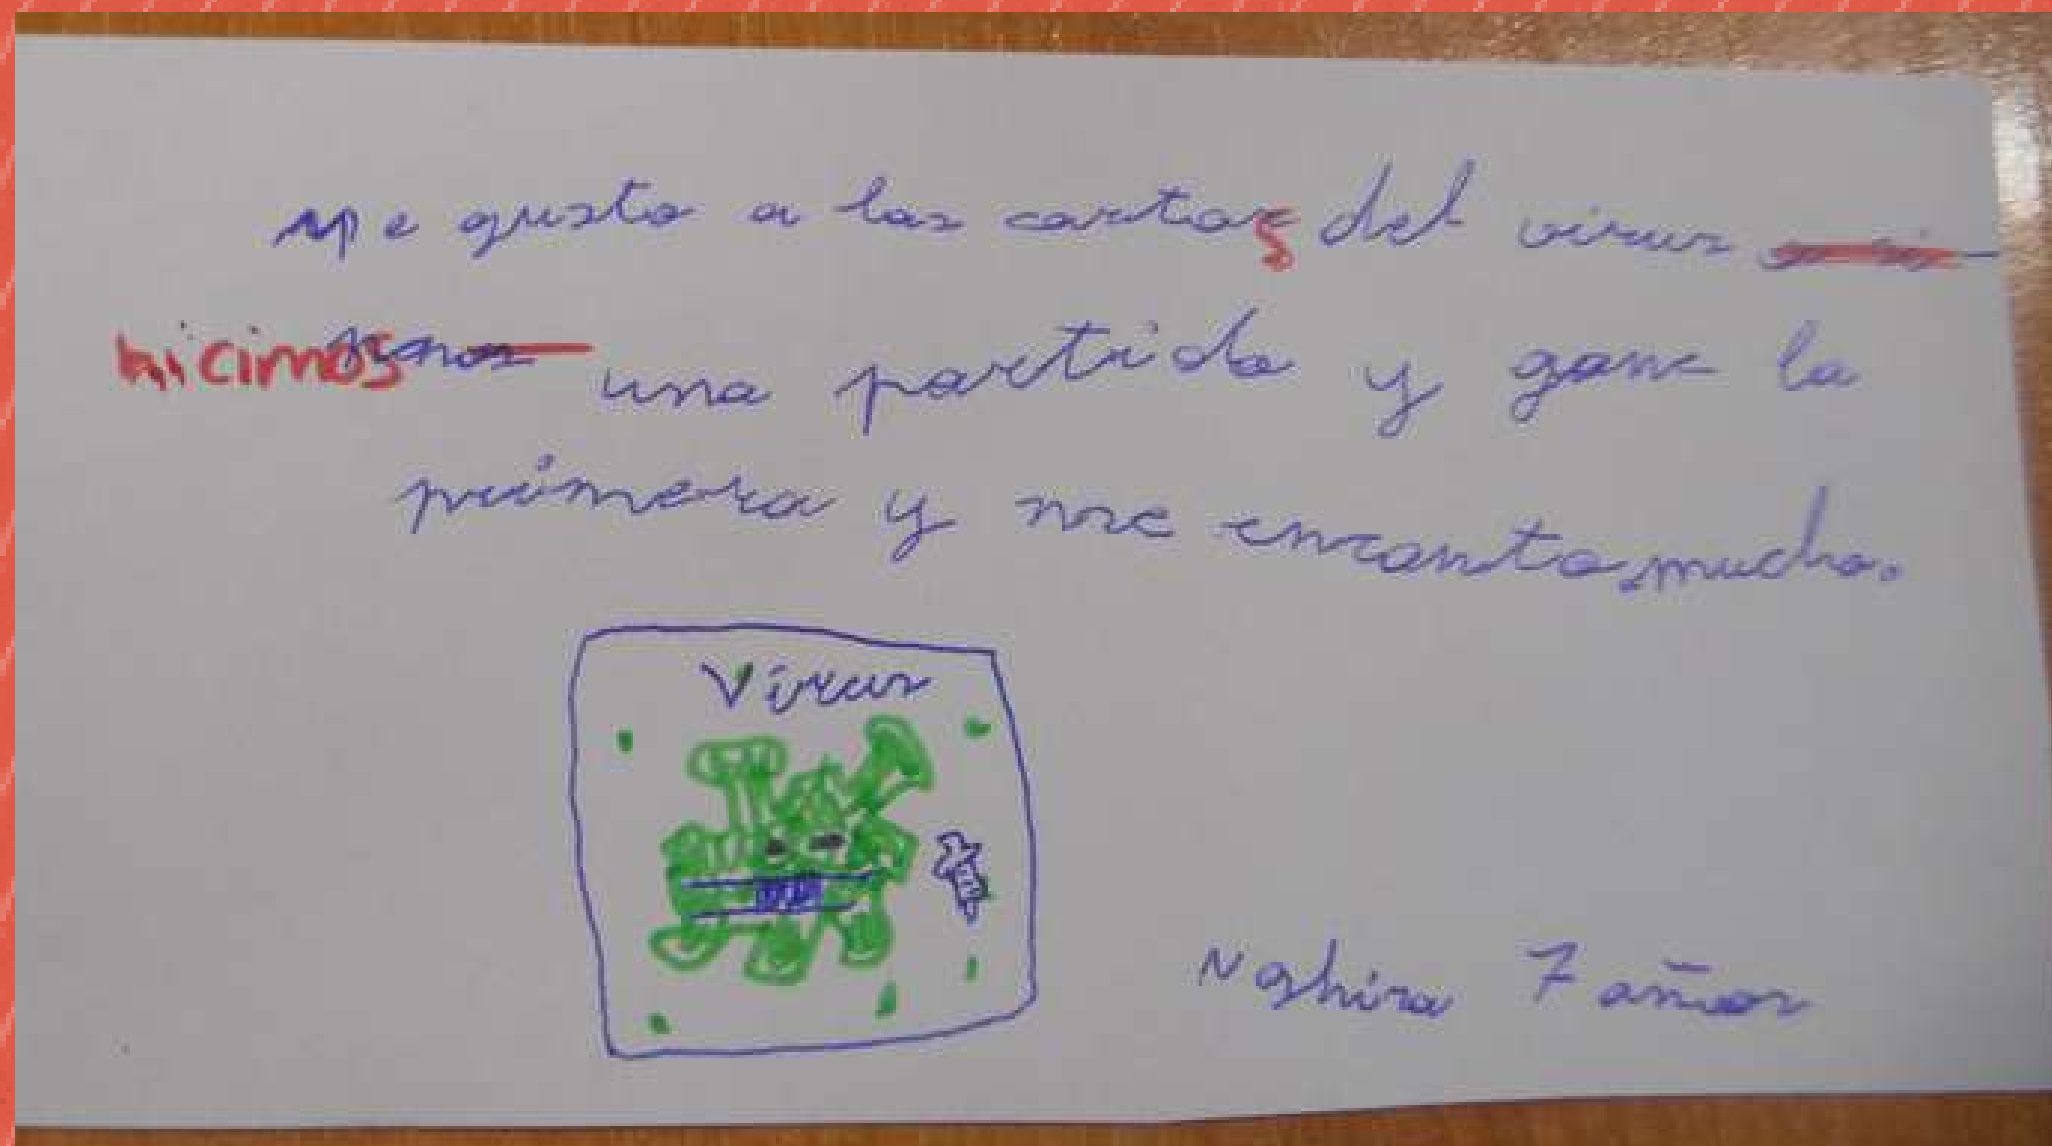 Me gusto a las cartas del virus
hicimos una partida y gane la
primera y me encanto mucho.
Virus
Nahira 7 años